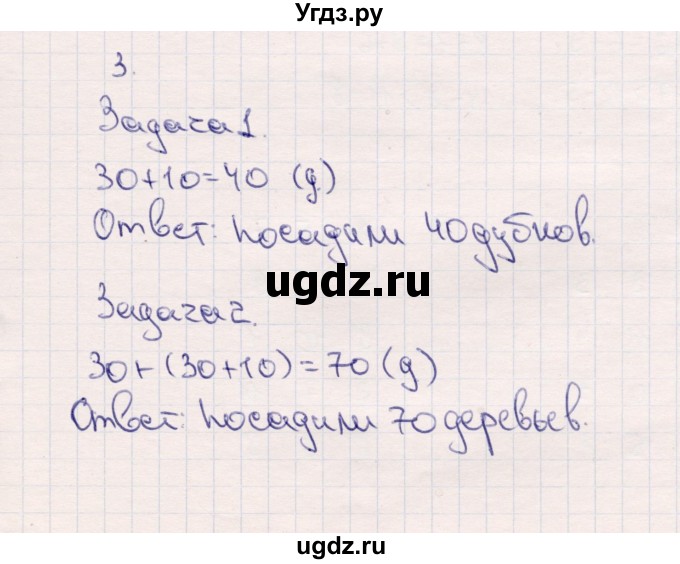 Угдз.ру
3.
Задача 1.
30+10=40 (д)
Ответ: посадили 40 дубков.
ugdz.ru
Задача 2.
30+(30+10)=70 (д)
Ответ: посадили 70 деревьев.
ugdz.ru